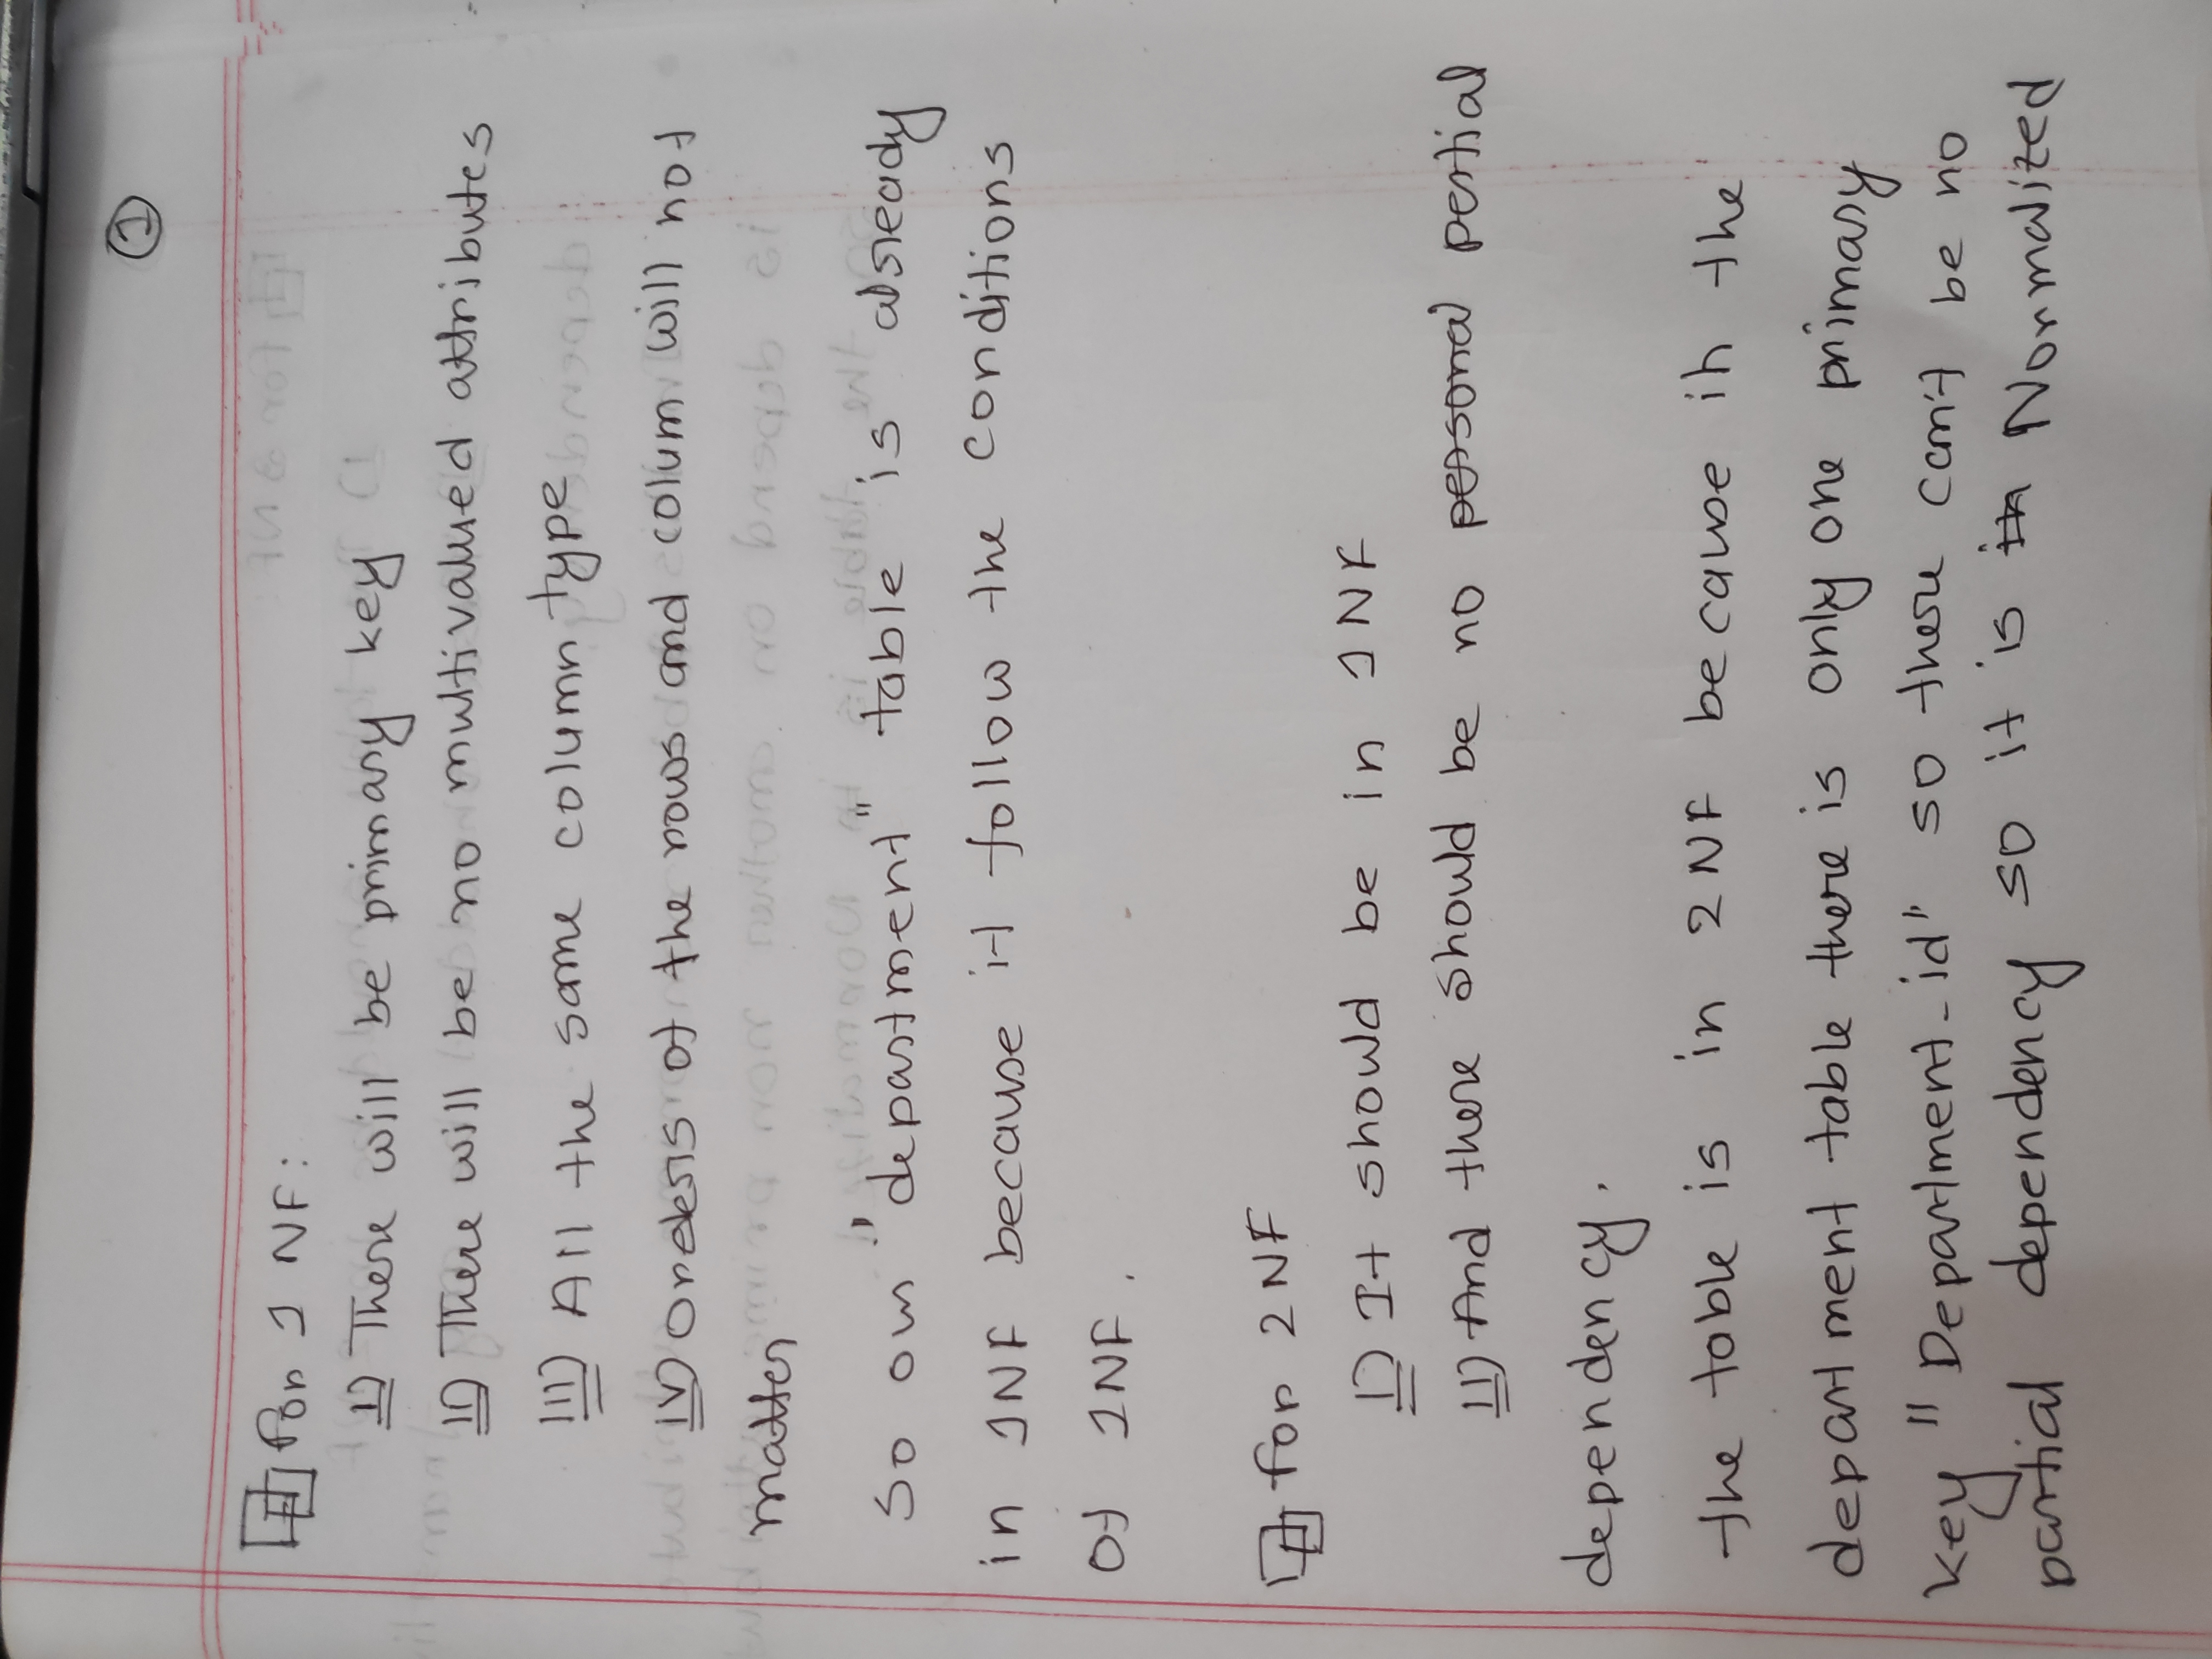 ①
For 1 NF:
I) There will be primary key
II) There will be no multivalued attributes
III) All the same column type
IV) Orders of the rows and column will not
matter
So our "department" table is already
in 1NF because it follow the conditions
of 1NF.
For 2NF
I) It should be in 1NF
II) And there should be no personal partial
dependency.
the table is in 2NF because in the
department table there is only one primary
key "Department-id" so there can't be no
partial dependency so it is in Normalized